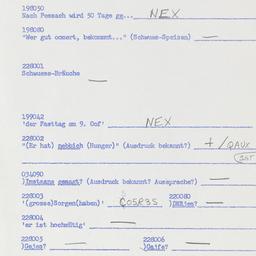 198030
Nach Pessach wird 50 Tage ge... NEX
198080
"Wer gut omert, bekommt..." (Schwuos-Speisen) —
228001
Schwuess-Bräuche —
199042
'der Fasttag am 9. Oof' NEX
228002
"(Er hat) nebbich (Hunger)" (Ausdruck bekannt?) + /QAUX
034090
)Instans gemagt? (Ausdruck bekannt? Aussprache?) —
228003 220080
'(grosse)Sorgen(haben)' COSR3S —
228004
'er ist hochmütig' —
228005 228006
)Gaieg? — )Gaife? —